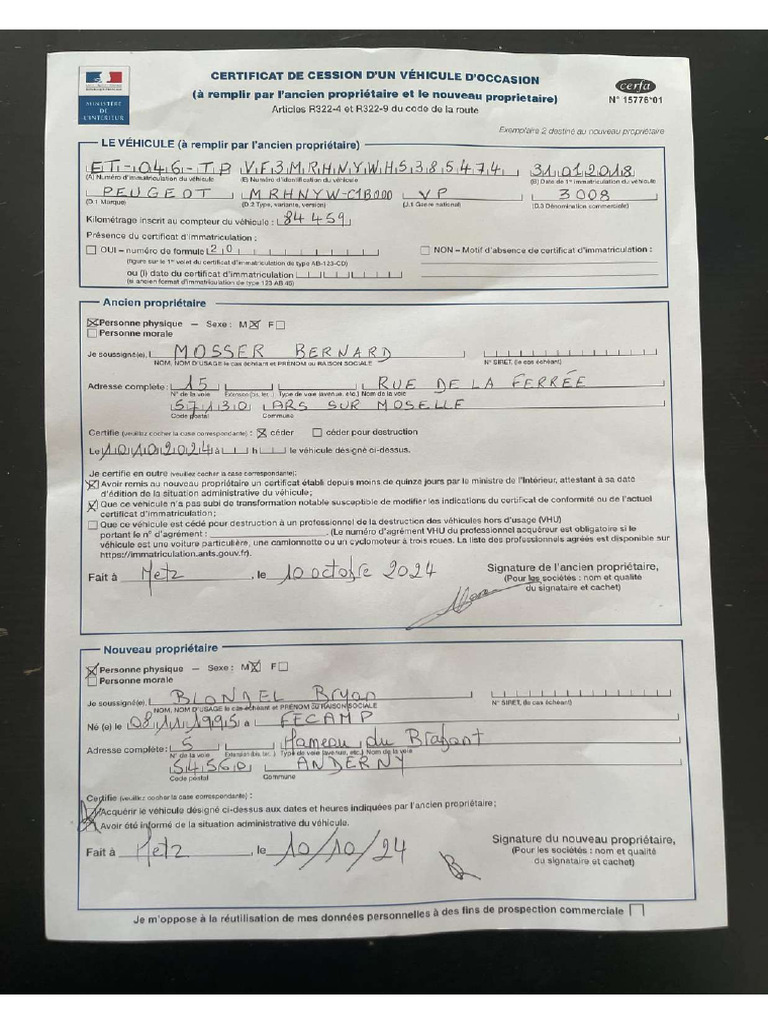 CERTIFICAT DE CESSION D'UN VÉHICULE D'OCCASION
(à remplir par l'ancien propriétaire et le nouveau proprietaire)
Articles R322-4 et R322-9 du code de la route
MINISTÈRE
DE
L'INTÉRIEUR
cerfa
N° 15776*01
Exemplaire 2 destiné au nouveau propriétaire
LE VÉHICULE (à remplir par l'ancien propriétaire)
ET-046-TP VF3MRHNYWHS385474 31012018
(A) Numéro d'immatriculation du véhicule (E) Numéro d'identification du véhicule (B) Date de 1re immatriculation du véhicule
PEUGEOT MRHNYW-C1B000 VP 3008
(D.1) Marque (D.2) Type, variante, version) (J.1) Genre national) (D.3) Dénomination commerciale)
Kilométrage inscrit au compteur du véhicule : 84 459
Présence du certificat d'immatriculation :
OUI – numéro de formule 20 NON – Motif d'absence de certificat d'immatriculation :
(figure sur le 1er volet du certificat d'immatriculation de type AB-123-CD)
ou (I) date du certificat d'immatriculation
(si ancien format d'immatriculation de type 123 AB 45)
Ancien propriétaire
Personne physique – Sexe : M F
Personne morale
Je soussigné(e), MOSSER BERNARD
NOM, NOM D'USAGE le cas échéant et PRÉNOM ou RAISON SOCIALE N° SIRET, (le cas échéant)
Adresse complète : 15 RUE DE LA FERRÉE
N° de la voie Extension (bis, ter, ) Type de voie (avenue, etc.) Nom de la voie
57130 ARS SUR MOSELLE
Code postal Commune
Certifie (veuillez cocher la case correspondante) : céder céder pour destruction
Le 10102024 à h le véhicule désigné ci-dessus.
Je certifie en outre (veuillez cocher la case correspondante) :
Avoir remis au nouveau propriétaire un certificat établi depuis moins de quinze jours par le ministre de l'Intérieur, attestant à sa date
d'édition de la situation administrative du véhicule;
Que ce véhicule n'a pas subi de transformation notable susceptible de modifier les indications du certificat de conformité ou de l'actuel
certificat d'immatriculation;
Que ce véhicule est cédé pour destruction à un professionnel de la destruction des véhicules hors d'usage (VHU)
portant le n° d'agrément : . (Le numéro d'agrément VHU du professionnel acquéreur est obligatoire si le
véhicule est une voiture particulière, une camionnette ou un cyclomoteur à trois roues. La liste des professionnels agréés est disponible sur
https://immatriculation.ants.gouv.fr).
Fait à Metz , le 10 octobre 2024
Signature de l'ancien propriétaire,
(Pour les sociétés : nom et qualité
du signataire et cachet)
Nouveau propriétaire
Personne physique – Sexe : M F
Personne morale
Je soussigné(e), BLONDEL Bryan
NOM, NOM D'USAGE le cas échéant et PRÉNOM ou RAISON SOCIALE N° SIRET, (le cas échéant)
Né (e) le 08111995 à FECAMP
Adresse complète : 5 Hameau du Brabant
N° de la voie Extension (bis, ter, ) Type de voie (avenue, etc.) Nom de la voie
54560 ANDERNY
Code postal Commune
Certifie (veuillez cocher la case correspondante) :
Acquérir le véhicule désigné ci-dessus aux dates et heures indiquées par l'ancien propriétaire;
Avoir été informé de la situation administrative du véhicule.
Fait à Metz , le 10/10/24
Signature du nouveau propriétaire,
(Pour les sociétés : nom et qualité
du signataire et cachet)
Je m'oppose à la réutilisation de mes données personnelles à des fins de prospection commerciale